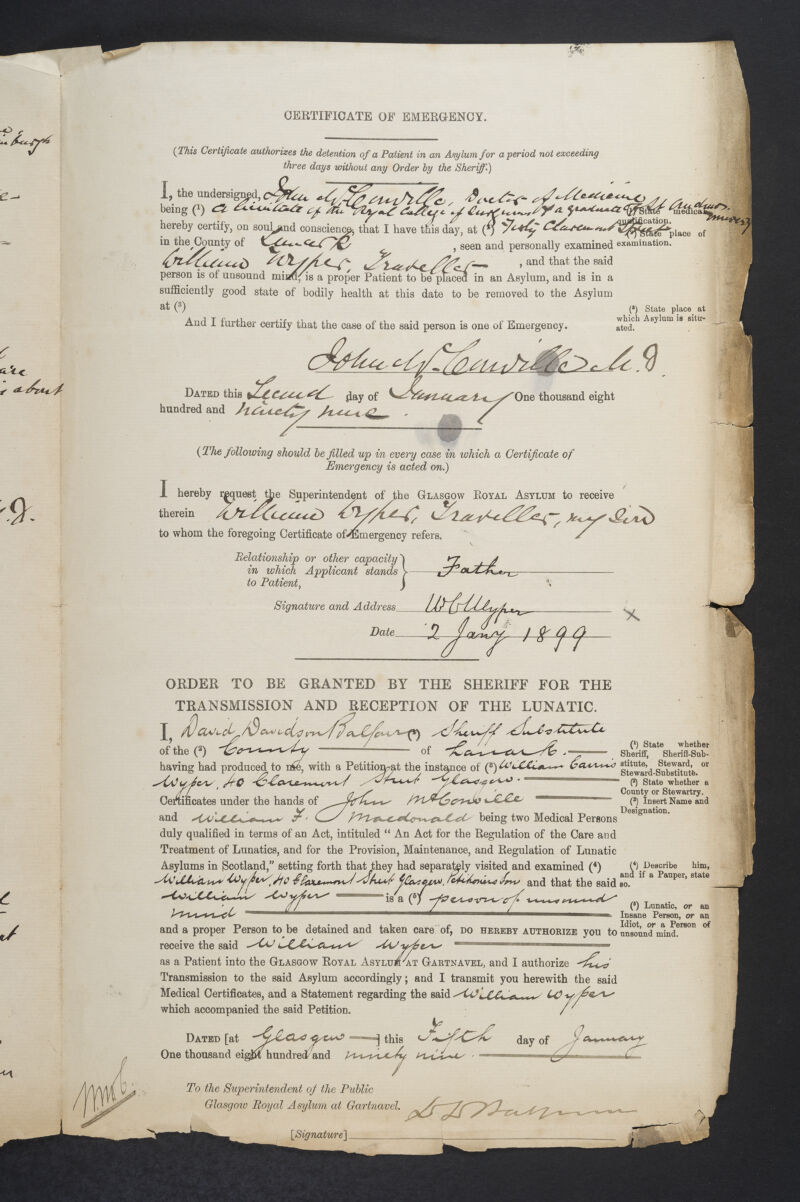 CERTIFICATE OF EMERGENCY.
(This Certificate authorizes the detention of a Patient in an Asylum for a period not exceeding
three days without any Order by the Sheriff.)
I, the undersigned, John McConville, Doctor of Medicine
being (¹) a licentiate of the Royal College of Surgeons & a graduate of St Andrews University
(¹) State medical
qualification.
hereby certify, on soul and conscience, that I have this day, at (²) Forty Claremont Street
(²) State place of
examination.
in the County of Lanark, seen and personally examined
William Wyper, Traveller, and that the said
person is of unsound mind, is a proper Patient to be placed in an Asylum, and is in a
sufficiently good state of bodily health at this date to be removed to the Asylum
at (³)
(³) State place at
which Asylum is situ-
ated.
And I further certify that the case of the said person is one of Emergency.
John McConville M.D.
DATED this Second day of January One thousand eight
hundred and ninety nine.
(The following should be filled up in every case in which a Certificate of
Emergency is acted on.)
I hereby request the Superintendent of the GLASGOW ROYAL ASYLUM to receive
therein William Wyper, Traveller, my Son
to whom the foregoing Certificate of Emergency refers.
Relationship or other capacity
in which Applicant stands
to Patient,
Father
Signature and Address W C Wyper ×
Date 2 Jany 1899
ORDER TO BE GRANTED BY THE SHERIFF FOR THE
TRANSMISSION AND RECEPTION OF THE LUNATIC.
I, David Davidson Balfour (¹) Sheriff Substitute
of the (²) County of Lanark.
(¹) State whether
Sheriff, Sheriff-Sub-
stitute, Steward, or
Steward-Substitute.
having had produced to me, with a Petition at the instance of (³) William Cairns
Wyper, 40 Claremont Street Glasgow.
(²) State whether a
County or Stewartry.
Certificates under the hands of John McConville
(³) Insert Name and
Designation.
and William F. Macdonald being two Medical Persons
duly qualified in terms of an Act, intituled "An Act for the Regulation of the Care and
Treatment of Lunatics, and for the Provision, Maintenance, and Regulation of Lunatic
Asylums in Scotland," setting forth that they had separately visited and examined (⁴)
(⁴) Describe him,
and if a Pauper, state
so.
William Wyper, 40 Claremont Street Glasgow, Petitioners Son and that the said
William Wyper is a (⁵) person of unsound
mind
(⁵) Lunatic, or an
Insane Person, or an
Idiot, or a Person of
unsound mind.
and a proper Person to be detained and taken care of, DO HEREBY AUTHORIZE you to
receive the said William Wyper
as a Patient into the GLASGOW ROYAL ASYLUM AT GARTNAVEL, and I authorize his
Transmission to the said Asylum accordingly; and I transmit you herewith the said
Medical Certificates, and a Statement regarding the said William Wyper
which accompanied the said Petition.
DATED [at Glasgow] this Fifth day of January
One thousand eight hundred and ninety nine.
To the Superintendent of the Public
Glasgow Royal Asylum at Gartnavel.
D D Balfour
[Signature]